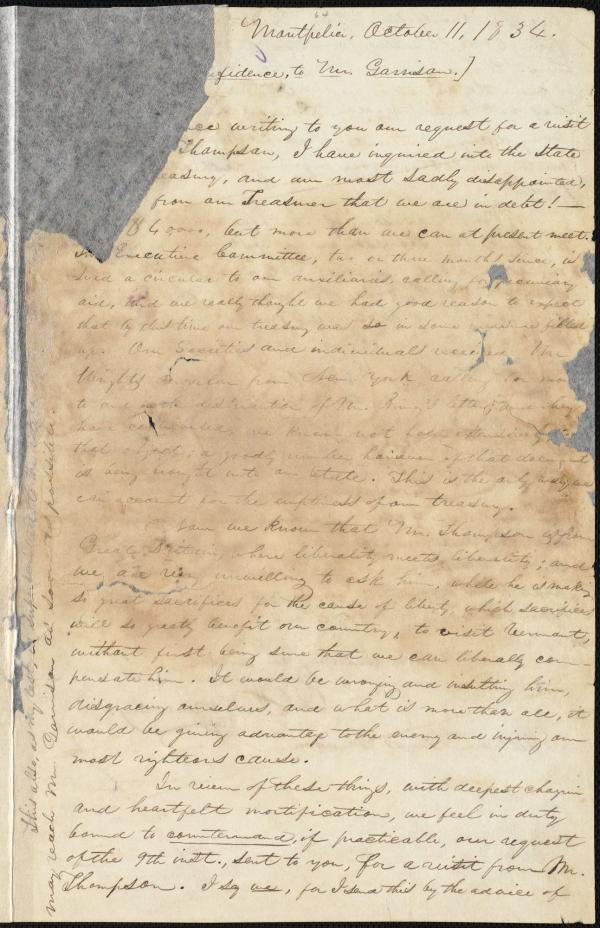 Montpelier, October 11, 1834.
fidence, to Mr. Garrison.]
writing to you our request for a visit
Thompson, I have inquired into the state
easury, and am most sadly disappointed,
from our Treasurer that we are in debt!—
but more than we can at present meet.
Executive Committee, two or three months since, is
sued a circular to our auxiliaries, calling for pecuniary
aid, and we really thought we had good reason to expect
that by this time our treasury was so in some measure filled
up. Our Societies and individuals received Mr
circular from New York calling for
to aid distribution of Mr. letter, and they
have we know not how extensively
that object; a goodly number however of that document
is being brought into our state. This is the only way we
can account for the emptiness of our treasury.
Now we know that Mr. Thompson is from
Great Britain, where liberality meets liberality; and
we are very unwilling to ask him, while he is making
so great sacrifices for the cause of liberty, which sacrifices
will so greatly benefit our country, to visit Vermont,
without first being sure that we can liberally com-
pensate him. It would be wronging and insulting him,
disgracing ourselves, and what is more than all, it
would be giving advantage to the enemy and injuring our
most righteous cause.
In view of these things, with deepest chagrin
and heartfelt mortification, we feel in duty
bound to countermand, if practicable, our request
of the 9th inst., sent to you, for a visit from Mr.
Thompson. I say we, for I send this by the advice of
This also, as my last, is
may reach Mr. Garrison as soon as possible.